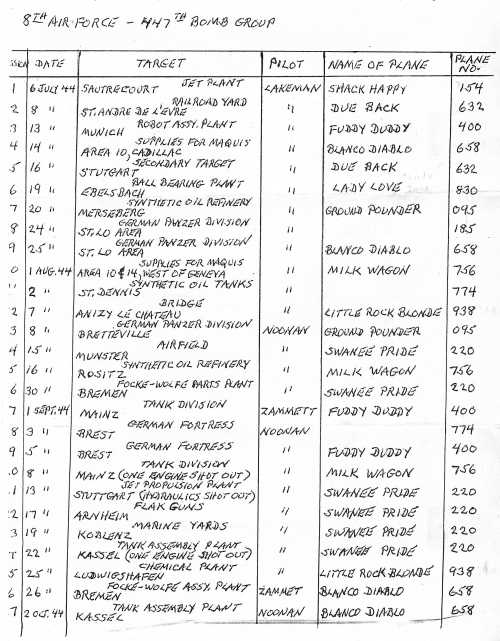 8TH AIR FORCE - 447TH BOMB GROUP
SSION DATE TARGET PILOT NAME OF PLANE PLANE NO.
JET PLANT
1 6 JULY '44 SAUTRECOURT LAKEMAN SHACK HAPPY 154
RAILROAD YARD
2 8 " ST. ANDRE DE L'EVRE " DUE BACK 632
ROBOT ASSY. PLANT
3 13 " MUNICH " FUDDY DUDDY 400
SUPPLIES FOR MAQUIS
4 14 " AREA 10, CADILLAC " BLANCO DIABLO 658
SECONDARY TARGET
5 16 " STUTGART " DUE BACK 632
BALL BEARING PLANT
6 19 " EBELSBACH " LADY LOVE 830
SYNTHETIC OIL REFINERY
7 20 " MERSEBERG " GROUND POUNDER 095
GERMAN PANZER DIVISION
8 24 " ST. LO AREA " 185
GERMAN PANZER DIVISION
9 25 " ST. LO AREA " BLANCO DIABLO 658
SUPPLIES FOR MAQUIS
0 1 AUG. 44 AREA 10 & 14, WEST OF GENEVA " MILK WAGON 756
SYNTHETIC OIL TANKS
" 2 " ST. DENNIS " 774
BRIDGE
2 7 " ANIZY LE CHATEAU " LITTLE ROCK BLONDE 938
GERMAN PANZER DIVISION
3 8 " BRETTEVILLE NOONAN GROUND POUNDER 095
AIRFIELD
4 15 " MUNSTER " SWANEE PRIDE 220
SYNTHETIC OIL REFINERY
5 16 " ROSITZ " MILK WAGON 756
FOCKE-WOLFE PARTS PLANT
6 30 " BREMEN " SWANEE PRIDE 220
TANK DIVISION
7 1 SEPT. 44 MAINZ ZAMMETT FUDDY DUDDY 400
GERMAN FORTRESS
8 3 " BREST NOONAN 774
GERMAN FORTRESS
9 5 " BREST " FUDDY DUDDY 400
TANK DIVISION
.0 8 " MAINZ (ONE ENGINE SHOT OUT) " MILK WAGON 756
JET PROPULSION PLANT
.1 13 " STUTTGART (HYDRAULICS SHOT OUT) " SWANEE PRIDE 220
FLAK GUNS
.2 17 " ARNHEIM " SWANEE PRIDE 220
MARINE YARDS
3 19 " KOBLENZ " SWANEE PRIDE 220
TANK ASSEMBLY PLANT
22 " KASSEL (ONE ENGINE SHOT OUT) " SWANEE PRIDE 220
CHEMICAL PLANT
5 25 " LUDWIGSHAFEN " LITTLE ROCK BLONDE 938
FOCKE-WOLFE ASSY. PLANT
6 26 " BREMEN ZAMMET BLANCO DIABLO 658
TANK ASSEMBLY PLANT
7 2 OCT. 44 KASSEL NOONAN BLANCO DIABLO 658